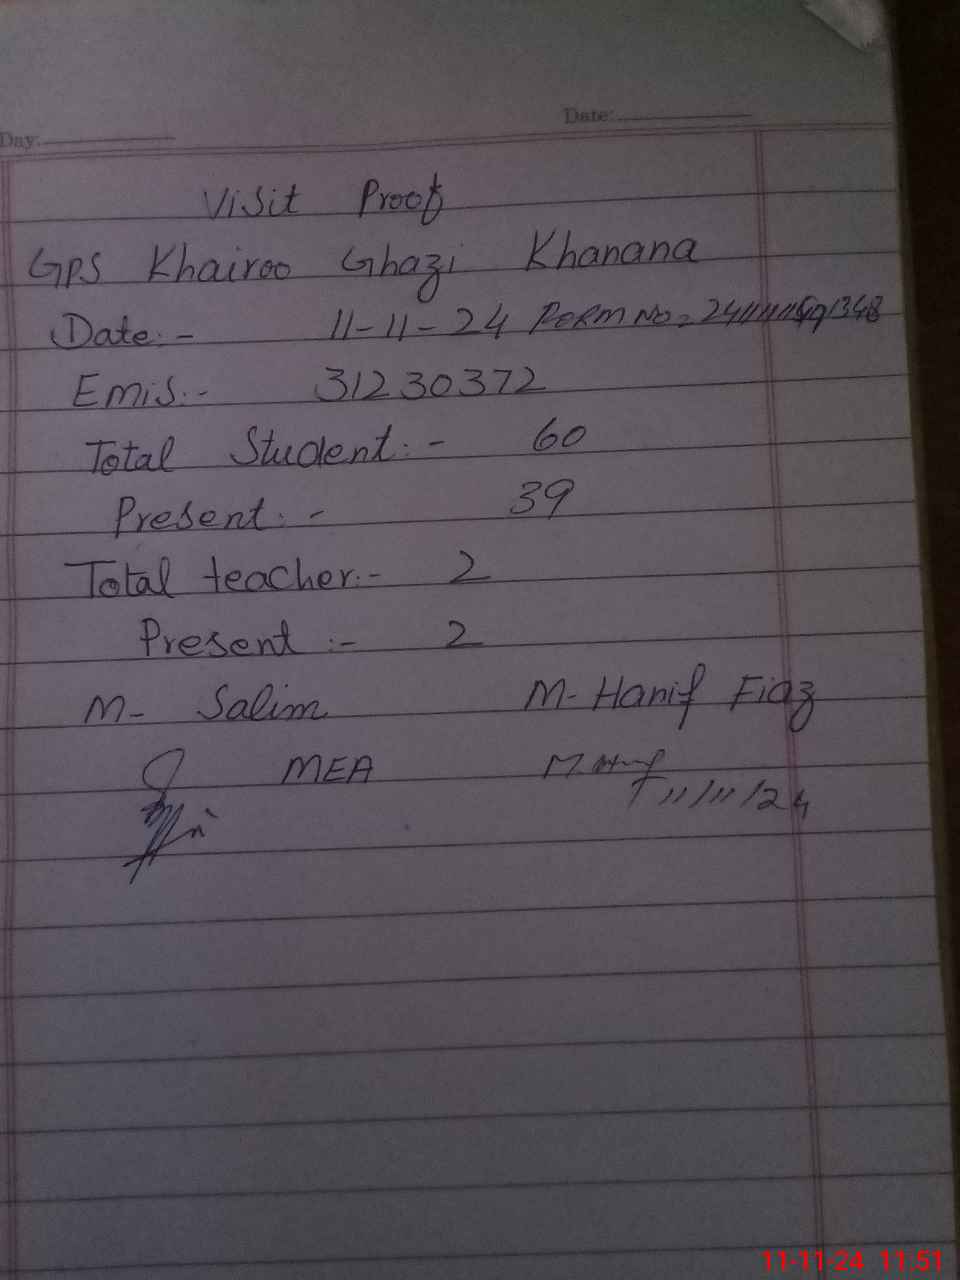 Day:
Date:
Visit Proof
GPS Khairoo Ghazi Khanana
Date:- 11-11-24 PERM No=
Emis:- 31230372
Total Student:- 60
Present:- 39
Total teacher:- 2
Present:- 2
M- Salim M-Hanif Fiaz
MEA
11/11/24
11-11-24 11:51